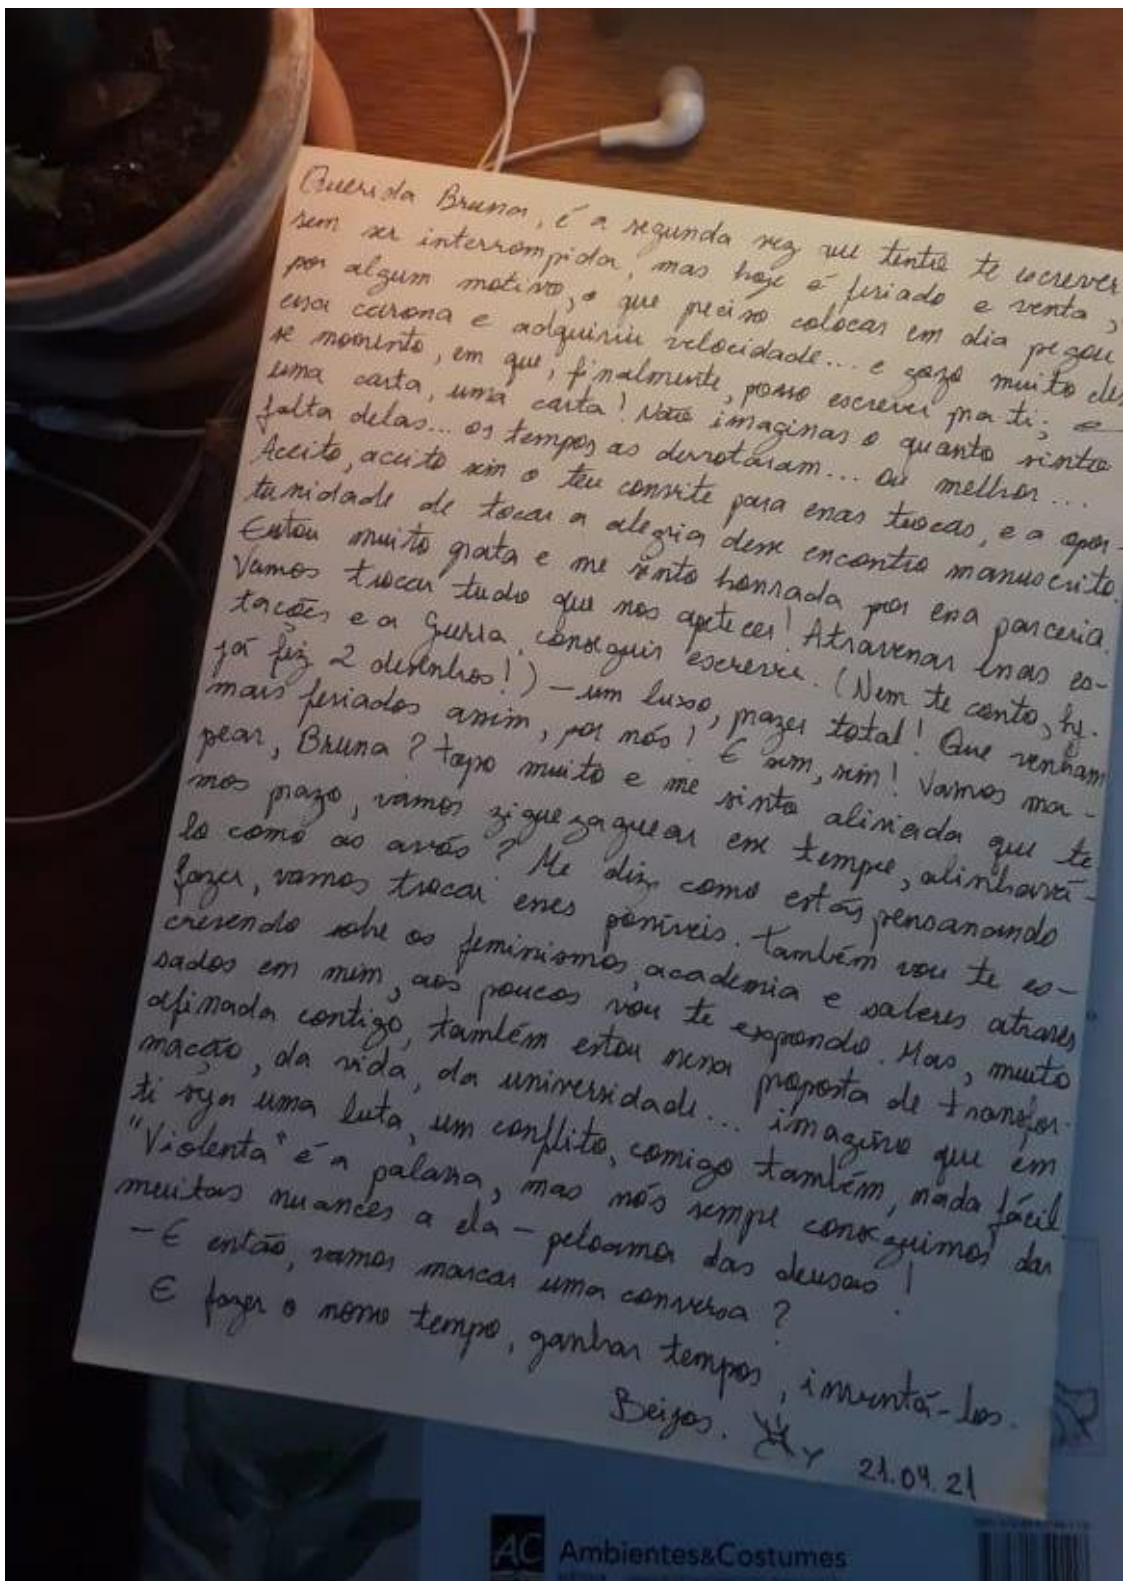 Querida Bruna, é a segunda vez que tento te escrever
sem ser interrompida, mas hoje é feriado e venta,
por algum motivo, o que preciso colocar em dia pegou
essa carona e adquiriu velocidade... e gozo muito des
se momento, em que, finalmente, posso escrever pra ti;
uma carta, uma carta! Não imaginas o quanto sinto
falta delas... os tempos as derrotaram... ou melhor...
Aceito, aceito sim o teu convite para essas trocas, e a opor-
tunidade de tocar a alegria desse encontro manuscrito.
Estou muito grata e me sinto honrada por essa parceria.
Vamos trocar tudo que nos apetecer! Atravessar essas es-
tações e a Guerra, conseguir escrever. (Nem te conto,
já fiz 2 desenhos!) – um luxo, prazer total! Que venham
mais feriados assim, por nós! E sim, sim! Vamos ma-
pear, Bruna? topo muito e me sinto aliviada que te-
mos prazo, vamos ziguezaguear esse tempo, alinhavá-
lo como as avós? Me diz como estás pensanando
fazer, vamos trocar esses possíveis. também vou te es-
crevendo sobre os feminismos, academia e saberes atraves
sados em mim, aos poucos vou te expondo. Mas, muito
afinada contigo, também estou nessa proposta de transfor-
mação, da vida, da universidade... imagino que em
ti seja uma luta, um conflito, comigo também, nada fácil.
"Violenta" é a palavra, mas nós sempre conseguimos dar
muitas nuances a ela – peloamor das deusas!
– E então, vamos marcar uma conversa?
E fazer o nosso tempo, ganhar tempos, inventá-los.
Beijos.
21.04.21
AC Ambientes&Costumes